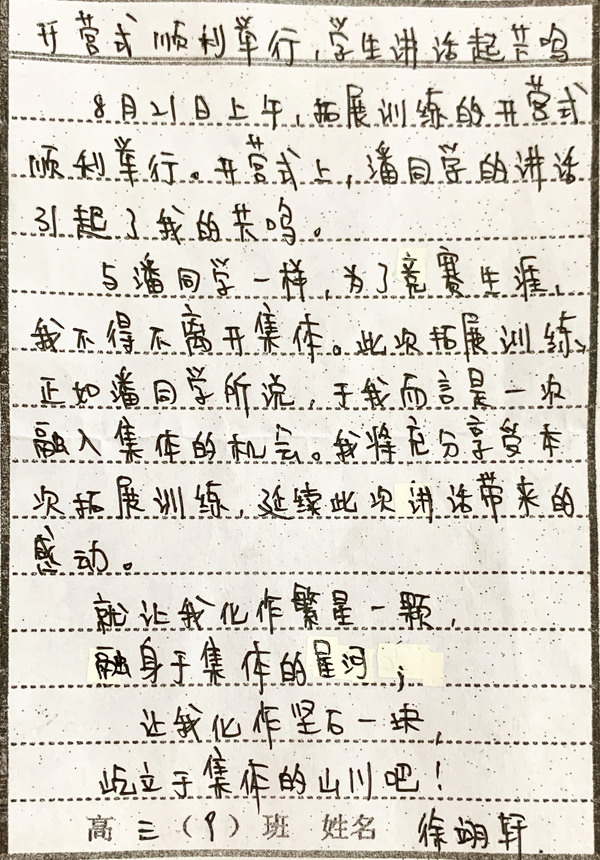 开营式顺利举行,学生讲话起共鸣
8月21日上午,拓展训练的开营式
顺利举行。开营式上,潘同学的讲话
引起了我的共鸣。
与潘同学一样,为了竞赛生涯,
我不得不离开集体。此次拓展训练,
正如潘同学所说,于我而言是一次
融入集体的机会。我将充分享受本
次拓展训练,延续此次讲话带来的
感动。
就让我化作繁星一颗,
融身于集体的星河;
让我化作坚石一块,
屹立于集体的山川吧!
高三(9)班 姓名 徐翊轩